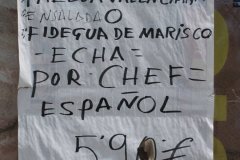 ENSALADA O
FIDEGUA DE MARISCO
-ECHA=
POR CHEF=
ESPAÑOL
5'90€